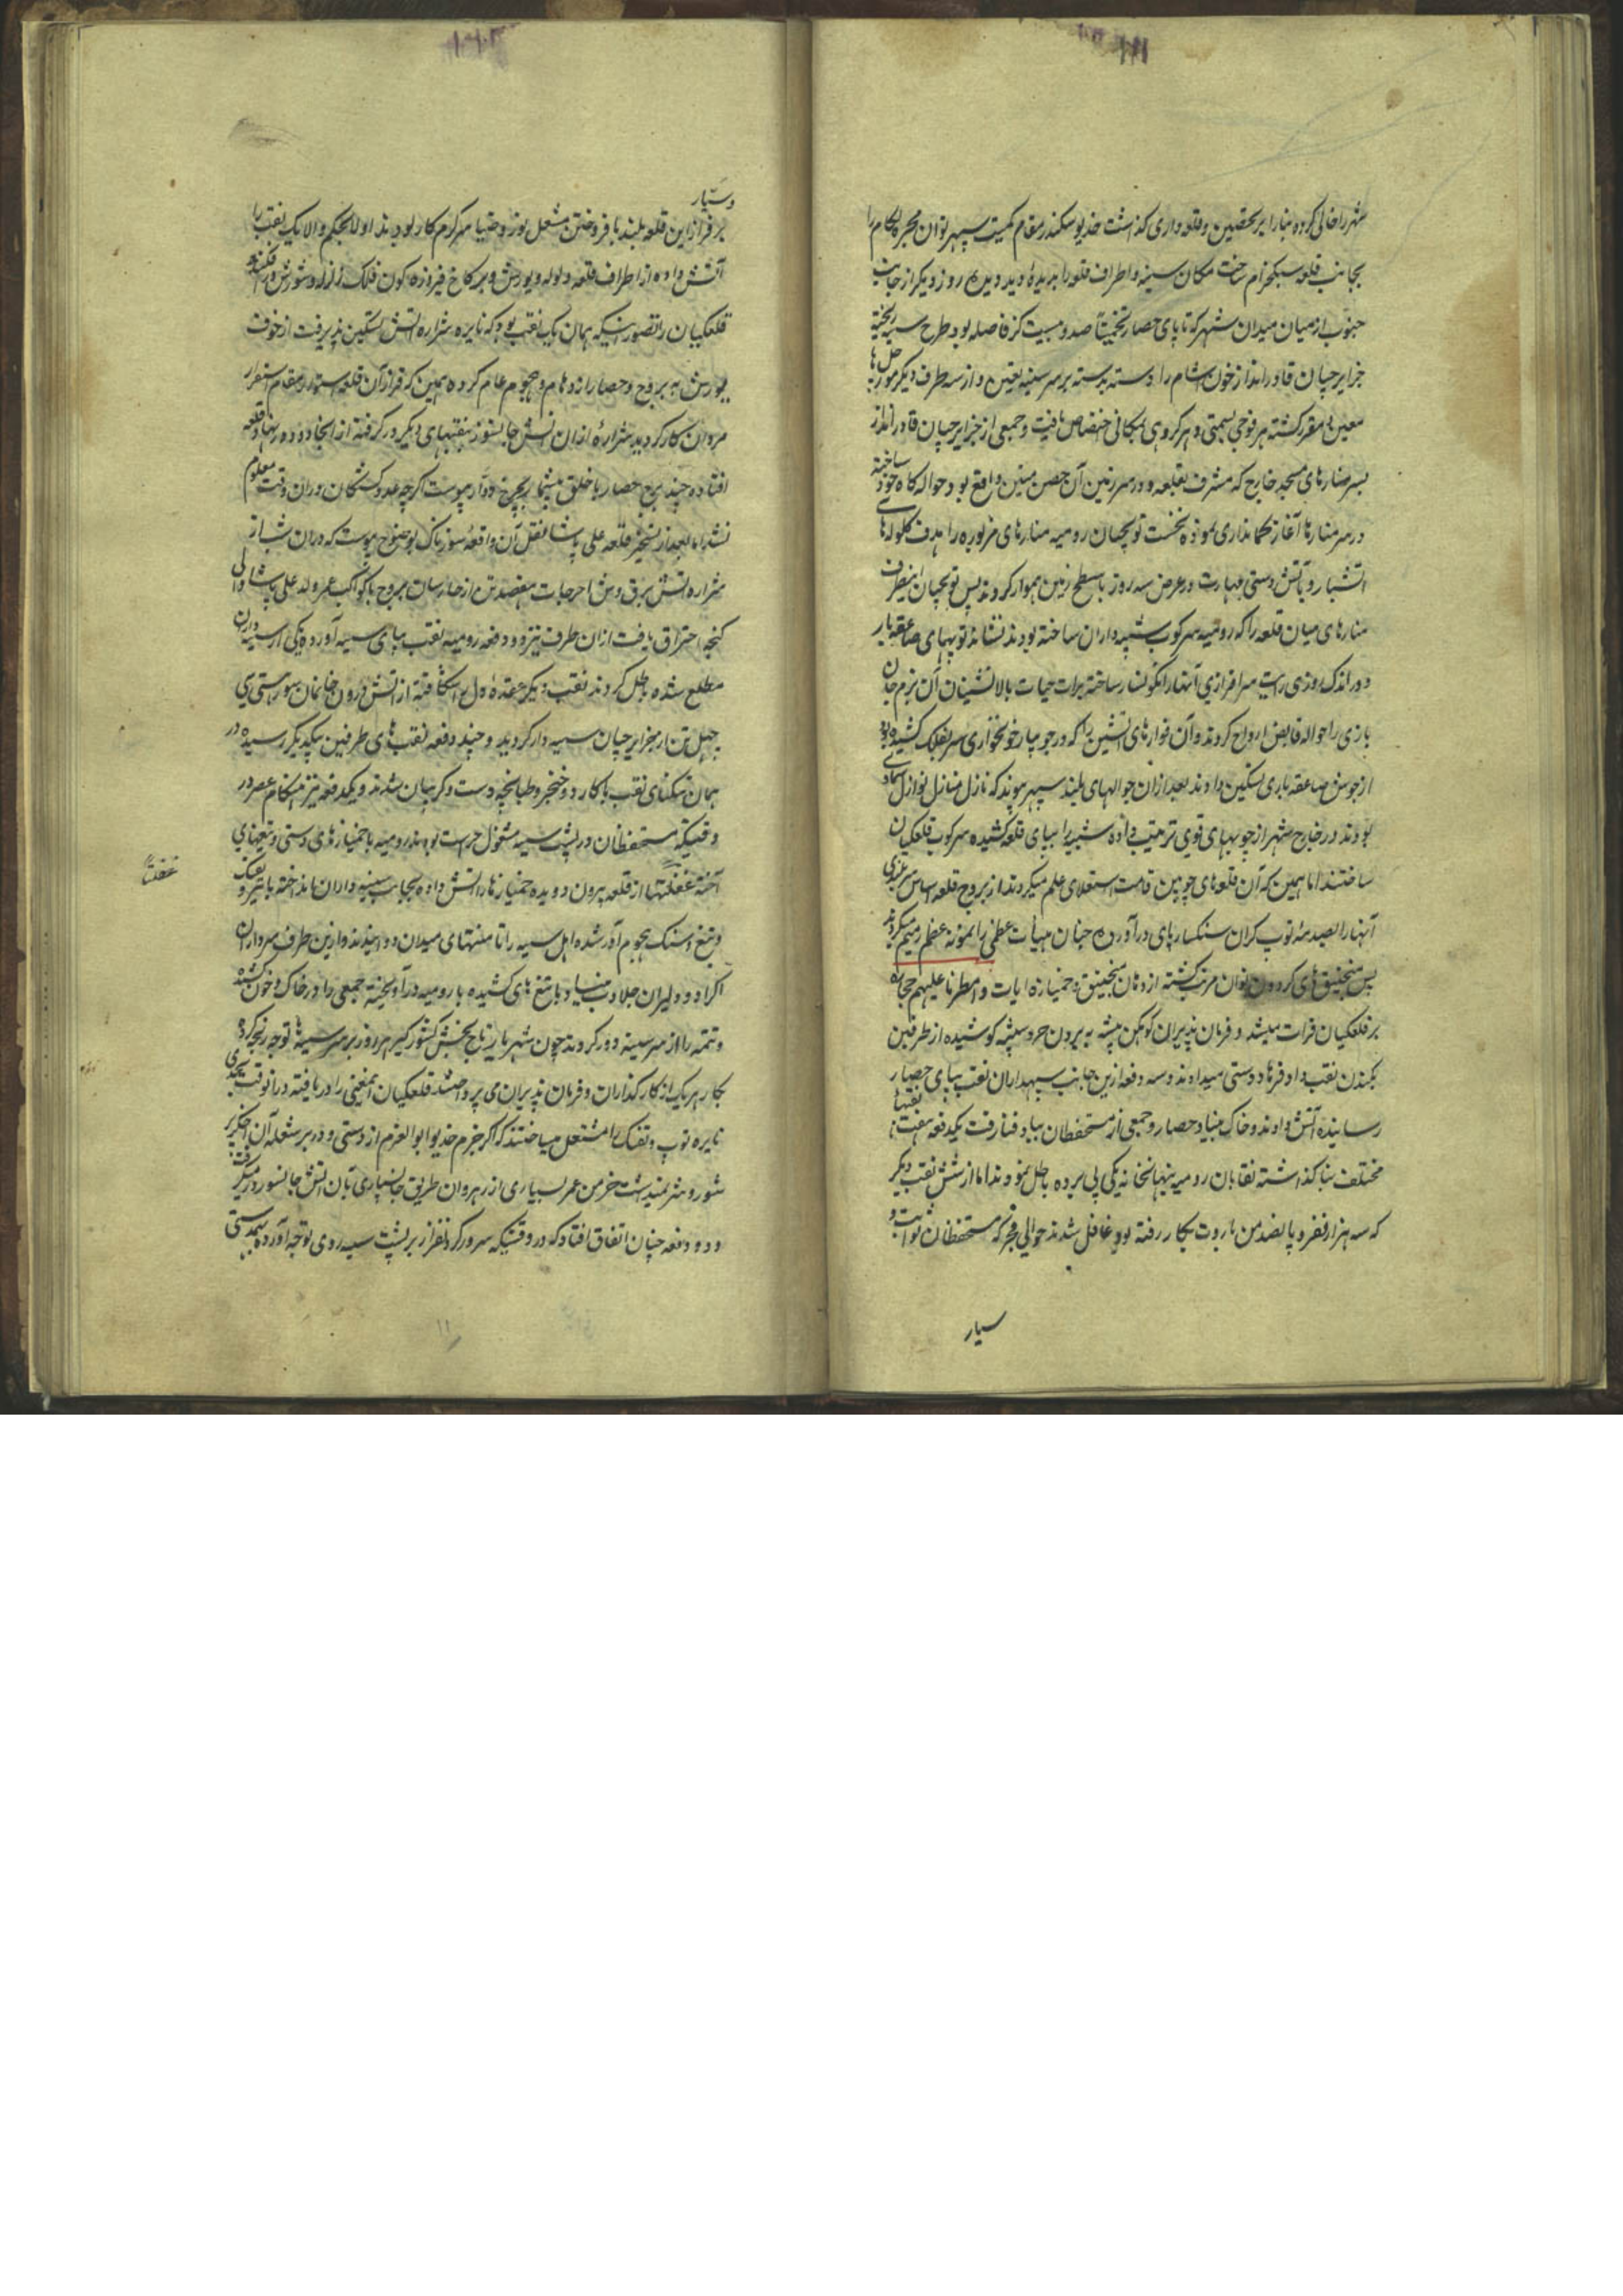 شهر را خالی کرده بنا را بر تحصین و قلعه داری گذاشت خدیو سکندر مقام کمیت سپهر توان مجره لگام را
بجانب قلعه سبکخرام ساخت مکان سیبه و اطراف قلعه را بدیدهٔ دید دیده روز دیگر از جانب
جنوب از میان میدان شهر که تا پای حصار تخمیناً صد و بیست گز فاصله بود طرح سیبه ریخته
جزایرچیان قادرانداز خون آشام را دسته بدسته بر سر سیبه تعیین و از سه طرف دیگر مورچل ها
معین و مقرر گشته هر فوجی بسمتی و هر گروهی بمکانی اختصاص یافت و جمعی از جزایرچیان قادرانداز
بسر منارهای مسجد خارج که مشرف بقلعه و در سرزمین آن حصن متین واقع بود حواله گاه خود ساخته
در سر منارها آغاز حکم اندازی نمودند نخست توپچیان رومیه منارهای مزبوره را هدف گلوله های
آتشبار و بآتش دستی مهارت در عرض سه روز با سطح زمین هموار کردند پس توپچیان اینطرف
منارهای میان قلعه را که رومیه سرکوب سیبه داران ساخته بودند نشانه توپهای صاعقه بار
و در اندک روزی رایت سرافرازی آنها را نگونسار ساخته برات حیات بالانشینان آن بزم جان
بازی را حواله قابض ارواح کردند و آن فوارهای آتشین را که در جویبار خونخواری سر بفلک کشیده بود
از جوش صاعقه باری تسکین دادند بعد از آن حوالهای بلند سپهر پیوند که نازل منازل نوازل سماوی
بودند در خارج شهر از چوبهای قوی ترتیب داده شبها بپای قلعه کشیده سرکوب قلعگیان
ساختند اما همین که آن قلعهای چوبین قامت استعلای علم میکردند از بروج قلعه اساس سربلندی
آنها را بصدمهٔ توپ گران سنگ از پای درآورده چنان هیأت عظمی را نمونه عظم رمیم میکردند
پس منجنیق های گردون توان مرتب گشته از دهان منجنیق و خمپاره آیات و امطرنا علیهم حجاره
بر قلعگیان قرائت میشد و فرمان پذیران کوهکن پیشه به بردن جر و سیبه کوشیده از طرفین
بکندن نقب داد فرهاد دستی میدادند و سه دفعه ازین جانب سیبه داران نقب بپای حصار
رسانیده آتش دادند و خاک بنیاد حصار و جمعی از مستحفظان بباد فنا رفت یکدفعه هفت نقبها
مختلف بنا گذاشته نقابان رومیه بنهانخانه یکی پی برده باطل نمودند اما از شش نقب دیگر
که سه هزار نفر و پانصد من باروت بکار رفته بود غافل شدند حوالی فجر که مستحفظان ثوابت و
سیار
و سیار
بر فراز این قلعه بلند بافروختن مشعل نور و ضیا سرگرم کار بودند اولا بحکم والا یک نقب را
آتش داده از اطراف قلعه ولوله و یورش و بر کاخ فیروزه گون فلک زلزله و شورش در افکندند
قلعگیان را تصور اینکه همان یک نقب بود که نایره شراره آتش تسکین پذیرفت از خوف
یورش به بروج و حصار ازدحام و هجوم عام کرده همین که فراز آن قلعه استوار مقام استقرار
مردان کار گردید شرارهٔ از آن آتش جانسوز بنقبهای دیگر در گرفته از آنجا دود در نهاد قلعه
افتاده چند برج حصار با خلق بیشمار بچرخ دوار پیوست اگرچه عدد کشتگان در آن وقت معلوم
نشد اما بعد از تسخیر قلعه علی پاشا نقل آن واقعهٔ سوزناک بوضوح پیوست که در آن شب از
شراره آتش برق وش احراجات هفتصد تن از حارسان بروج با کواکب عمر ولد علی پاشا والی
گنجه احتراق یافت از آن طرف نیز دو دفعه رومیه نقب بپای سیبه آورده یکی را سیبه داران
مطلع شده باطل کردند نقب دیگر عقده دل را شکافته از آتش درون خانمان سوز هستی
چهل تن از جزایرچیان سیبه دار گردید و چند دفعه نقب های طرفین بیکدیگر رسیده در
همان تنگنای نقب با کارد و خنجر و طپانچه دست و گریبان شدند و یکدفعه نیز هنگام عصر در
وقتیکه مستحفظان در پشت سیبه مشغول حراست بودند رومیه با خمپارهای دستی و تیغهای
آخته غفلتها از قلعه بیرون دویده خمپارها را آتش داده بجانب سیبه داران انداخته با تیر و تفنگ
و تیغ و سنگ هجوم آور شده اهل سیبه را تا منتهای میدان دوانیدند و ازین طرف سرداران
اکراد و دلیران جلادت بنیاد با تیغ های کشیده با رومیه درآویخته جمعی را در خاک و خون کشیده
و تتمه را از سر سیبه دور کردند چون شهریار تاج بخش کشورگیر هر روز بر سر سیبها توجه و تحریک
بکار هر یک از کارگذاران و فرمان پذیران می پرداختند قلعگیان اینمعنی را دریافته در آنوقت بجدی
نایره توپ و تفنگ را مشتعل میساختند که اگر حزم خدیو ابوالعزم از دستی و دور بر شعله آن
شور و شر نمیداشت خرمن عمر بسیاری از رهروان طریق جانسپاری بآن آتش جانسوز در میگرفت
و دو دفعه چنان اتفاق افتاد که در وقتیکه سرور گردنفراز بر پشت سیبه روی توجه آورده بهمدستی
غفلتاً
۱۱